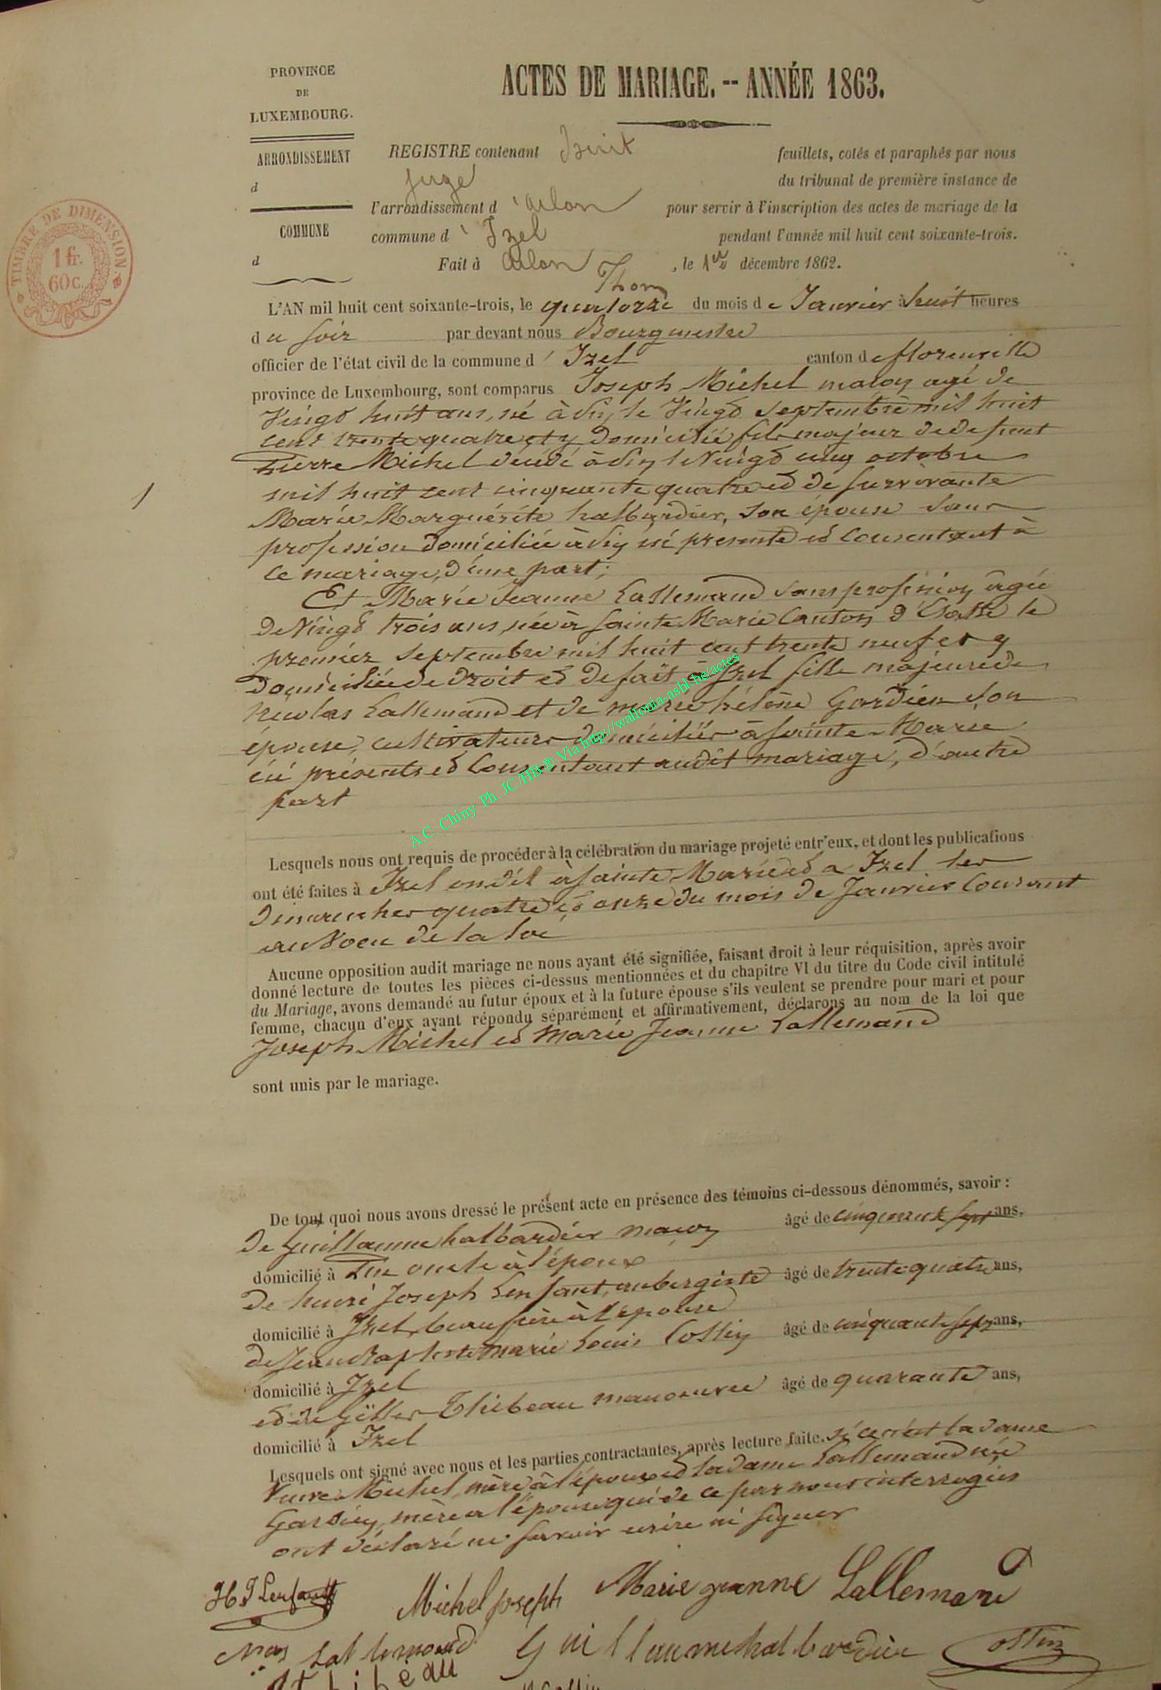 PROVINCE
DE
LUXEMBOURG.
ACTES DE MARIAGE. -- ANNÉE 1863.
ARRONDISSEMENT
d
COMMUNE
d
TIMBRE DE DIMENSION
1 fr.
60 c.
REGISTRE contenant huit feuillets, cotés et paraphés par nous
juge du tribunal de première instance de
l'arrondissement d'Arlon pour servir à l'inscription des actes de mariage de la
commune d'Izel pendant l'année mil huit cent soixante-trois.
Fait à Arlon, le 1er décembre 1862.
Thon
1
L'AN mil huit cent soixante-trois, le quatorze du mois de Janvier à huit heures
du soir par devant nous Bourgmestre
officier de l'état civil de la commune d'Izel canton de florenville
province de Luxembourg, sont comparus Joseph Michel maçon agé de
Vingt huit ans, né à le Vingt septembre mil huit
cent trente quatre et y Domicilié fils majeur de defunt
Pierre Michel décédé à le Vingt cinq octobre
mil huit cent cinquante quatre et de survivante
Marie Marguérite halbardier, son épouse sans
profession Domiciliée à ici presente et Consentant à
ce mariage, d'une part;
Et Marie Jeanne Lallemand sans profession âgée
De Vingt trois ans, née à Sainte Marie Canton d'Etalle le
premier Septembre mil huit cent trente neuf et y
Domiciliée de droit et de fait à Izel fille majeure de
Nicolas Lallemand et de marie hélène Gardien son
épouse, cultivateurs domiciliés à Sainte-Marie
ici présents et Consentant audit mariage, d'autre
part
A.C. Chiny Ph. JC HB © Via http://wallonia-asbl.be/actes
Lesquels nous ont requis de procéder à la célébration du mariage projeté entr'eux, et dont les publications
ont été faites à Izel à Sainte Marie et a Izel les
Dimanches quatre et onze du mois de Janvier Courant
au Voeu de la loi
Aucune opposition audit mariage ne nous ayant été signifiée, faisant droit à leur réquisition, après avoir
donné lecture de toutes les pièces ci-dessus mentionnées et du chapitre VI du titre du Code civil intitulé
du Mariage, avons demandé au futur époux et à la future épouse s'ils veulent se prendre pour mari et pour
femme, chacun d'eux ayant répondu séparément et affirmativement, déclarons au nom de la loi que
Joseph Michel et Marie Jeanne Lallemand
sont unis par le mariage.
De tout quoi nous avons dressé le présent acte en présence des témoins ci-dessous dénommés, savoir :
De Guillaume halbardier maçon âgé de cinquante sept ans,
domicilié à oncle à l'époux
De henri Joseph Lenfant, aubergiste âgé de trente quatre ans,
domicilié à Izel, beau frère à l'épouse
de Jean Baptiste marie Louis Collin âgé de cinquante sept ans,
domicilié à Izel
et de Thibeau manoeuvre âgé de quarante ans,
domicilié à Izel
Lesquels ont signé avec nous et les parties contractantes, après lecture faite. si ce n'est la dame
Veuve Michel, mère à l'époux et la dame Lallemand née
Gardien, mère à l'épouse qui de ce par nous interrogées
ont déclaré ne savoir ecrire ni signer
H J Lenfant Michel joseph Marie jeanne Lallemand
Lallemand Guillaume halbardier
Thibeau